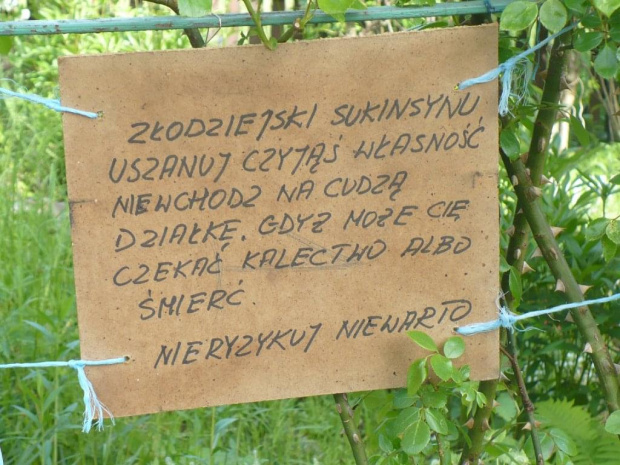 ZŁODZIEJSKI SUKINSYNU
USZANUJ CZYJĄŚ WŁASNOŚĆ
NIEWCHODZ NA CUDZĄ
DZIAŁKĘ. GDYŻ MOŻE CIĘ
CZEKAĆ KALECTWO ALBO
ŚMIERĆ.
NIERYZYKUJ NIEWARTO